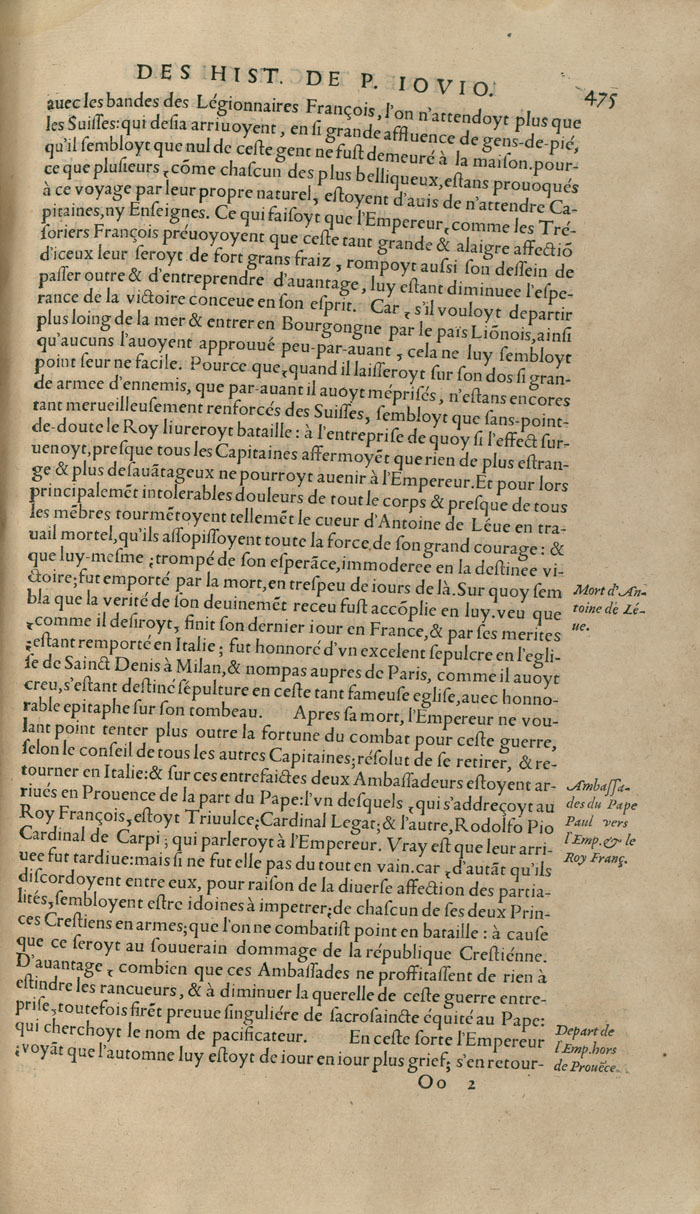 DES HIST. DE P. IOVIO.
475
auec les bandes des Légionnaires François, l'on n'attendoyt plus que
les Suiſſes: qui deſia arriuoyent, en ſi grande affluence de gens-de-pié,
qu'il ſembloyt que nul de ceſte gent ne fuſt demeuré à la maiſon. pour-
ce que pluſieurs, cōme chaſcun des plus belliqueux, eſtans prouoqués
à ce voyage par leur propre naturel, eſtoyent d'auis de n'attendre Ca-
pitaines, ny Enſeignes. Ce qui faiſoyt que l'Empereur, comme les Tré-
ſoriers François préuoyoyent que ceſte tant grande & alaigre affectiō
d'iceux leur ſeroyt de fort grans fraiz, rompoyt auſsi ſon deſſein de
paſſer outre & d'entreprendre d'auantage, luy eſtant diminuee l'eſpe-
rance de la victoire conceue en ſon eſprit. Car, s'il vouloyt departir
plus loing de la mer & entrer en Bourgongne par le païs Liōnois, ainſi
qu'aucuns l'auoyent approuué peu-par-auant, cela ne luy ſembloyt
point ſeur ne facile. Pource que, quand il laiſſeroyt ſur ſon dos ſi gran-
de armee d'ennemis, que par-auant il auoyt mépriſés, n'eſtans encores
tant merueilleuſement renforcés des Suiſſes, ſembloyt que ſans-point-
de-doute le Roy liureroyt bataille: à l'entrepriſe de quoy ſi l'effect ſur-
uenoyt, preſque tous les Capitaines affermoyēt que rien de plus eſtran-
ge & plus deſauātageux ne pourroyt auenir à l'Empereur. Et pour lors
principalemēt intolerables douleurs de tout le corps & preſque de tous
les mēbres tourmētoyent tellemēt le cueur d'Antoine de Léue en tra-
uail mortel, qu'ils aſſopiſſoyent toute la force de ſon grand courage: &
que luy-meſme; trompé de ſon eſperāce, immoderee en la deſtinee vi-
ctoire; fut emporté par la mort, en treſpeu de iours de là. Sur quoy ſem
bla que la verité de ſon deuinemēt receu fuſt accōplie en luy. veu que
, comme il deſiroyt, finit ſon dernier iour en France, & par ſes merites
; eſtant remporté en Italie; fut honnoré d'vn excelent ſepulcre en l'egli-
ſe de Sainct Denis à Milan, & nompas aupres de Paris, comme il auoyt
creu, s'eſtant deſtiné ſépulture en ceſte tant fameuſe egliſe, auec honno-
rable epitaphe ſur ſon tombeau. Apres ſa mort, l'Empereur ne vou-
lant point tenter plus outre la fortune du combat pour ceſte guerre,
ſelon le conſeil de tous les autres Capitaines; réſolut de ſe retirer, & re-
tourner en Italie: & ſur ces entrefaictes deux Ambaſſadeurs eſtoyent ar-
riués en Prouence de la part du Pape: l'vn deſquels, qui s'addreçoyt au
Roy François, eſtoyt Triuulce; Cardinal Legat; & l'autre, Rodolfo Pio
Cardinal de Carpi; qui parleroyt à l'Empereur. Vray eſt que leur arri-
uee fut tardiue: mais ſi ne fut elle pas du tout en vain. car, d'autāt qu'ils
diſcordoyent entre eux, pour raiſon de la diuerſe affection des partia-
lités, ſembloyent eſtre idoines à impetrer; de chaſcun de ſes deux Prin-
ces Creſtiens en armes; que l'on ne combatiſt point en bataille: à cauſe
que ce ſeroyt au ſouuerain dommage de la république Creſtiénne.
D'auantage, combien que ces Ambaſſades ne proffitaſſent de rien à
eſtindre les rancueurs, & à diminuer la querelle de ceſte guerre entre-
priſe, toutefois firēt preuue ſinguliére de ſacroſaincte équité au Pape:
qui cherchoyt le nom de pacificateur. En ceſte ſorte l'Empereur
; voyāt que l'automne luy eſtoyt de iour en iour plus grief; s'en retour-
Mort d'An-
toine de Lé-
ue.
Ambaſſa-
des du Pape
Paul vers
l'Emp. & le
Roy Franç.
Depart de
l'Emp. hors
de Prouēce.
Oo 2